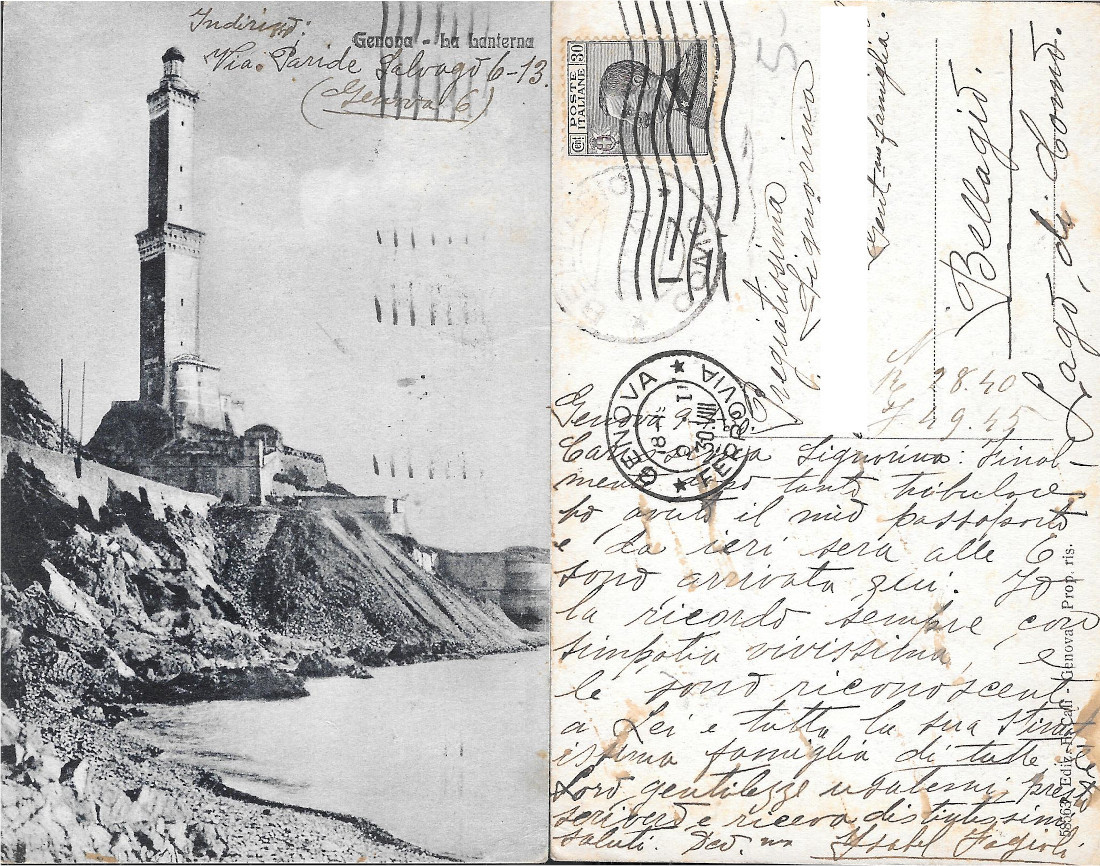 Indirizzo:
Genova - La Lanterna
Via Paride Salvago 6-13
(Genova 6)
POSTE ITALIANE
Cent. 30
GENOVA FERROVIA
30.VIII
Pregiatissima
Signorina
Gent-ma famiglia.
Bellagio.
Lago di Como.
28.40
49.45
Genova
Carissima Signorina: Final-
mente dopo tanto tribulare
ho avuto il mio passaporto
e da ieri sera alle 6
sono arrivata qui. Io
la ricordo sempre con
simpatia vivissima, e
le sono riconoscente
a Lei e tutta la sua stimat
issima famiglia di tutte le
Loro gentilezze usatemi, presto
scriverò e riceva distintissimi
saluti. Dev.ma Ysabel Fagioli
Ediz. - Genova - Prop. ris.